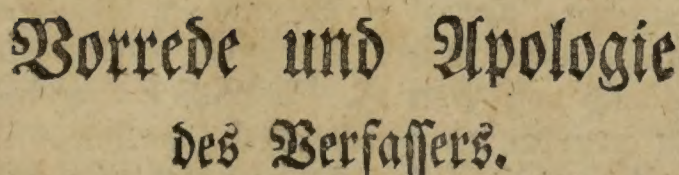 Vorrede und Apologie
des Verfaſſers.